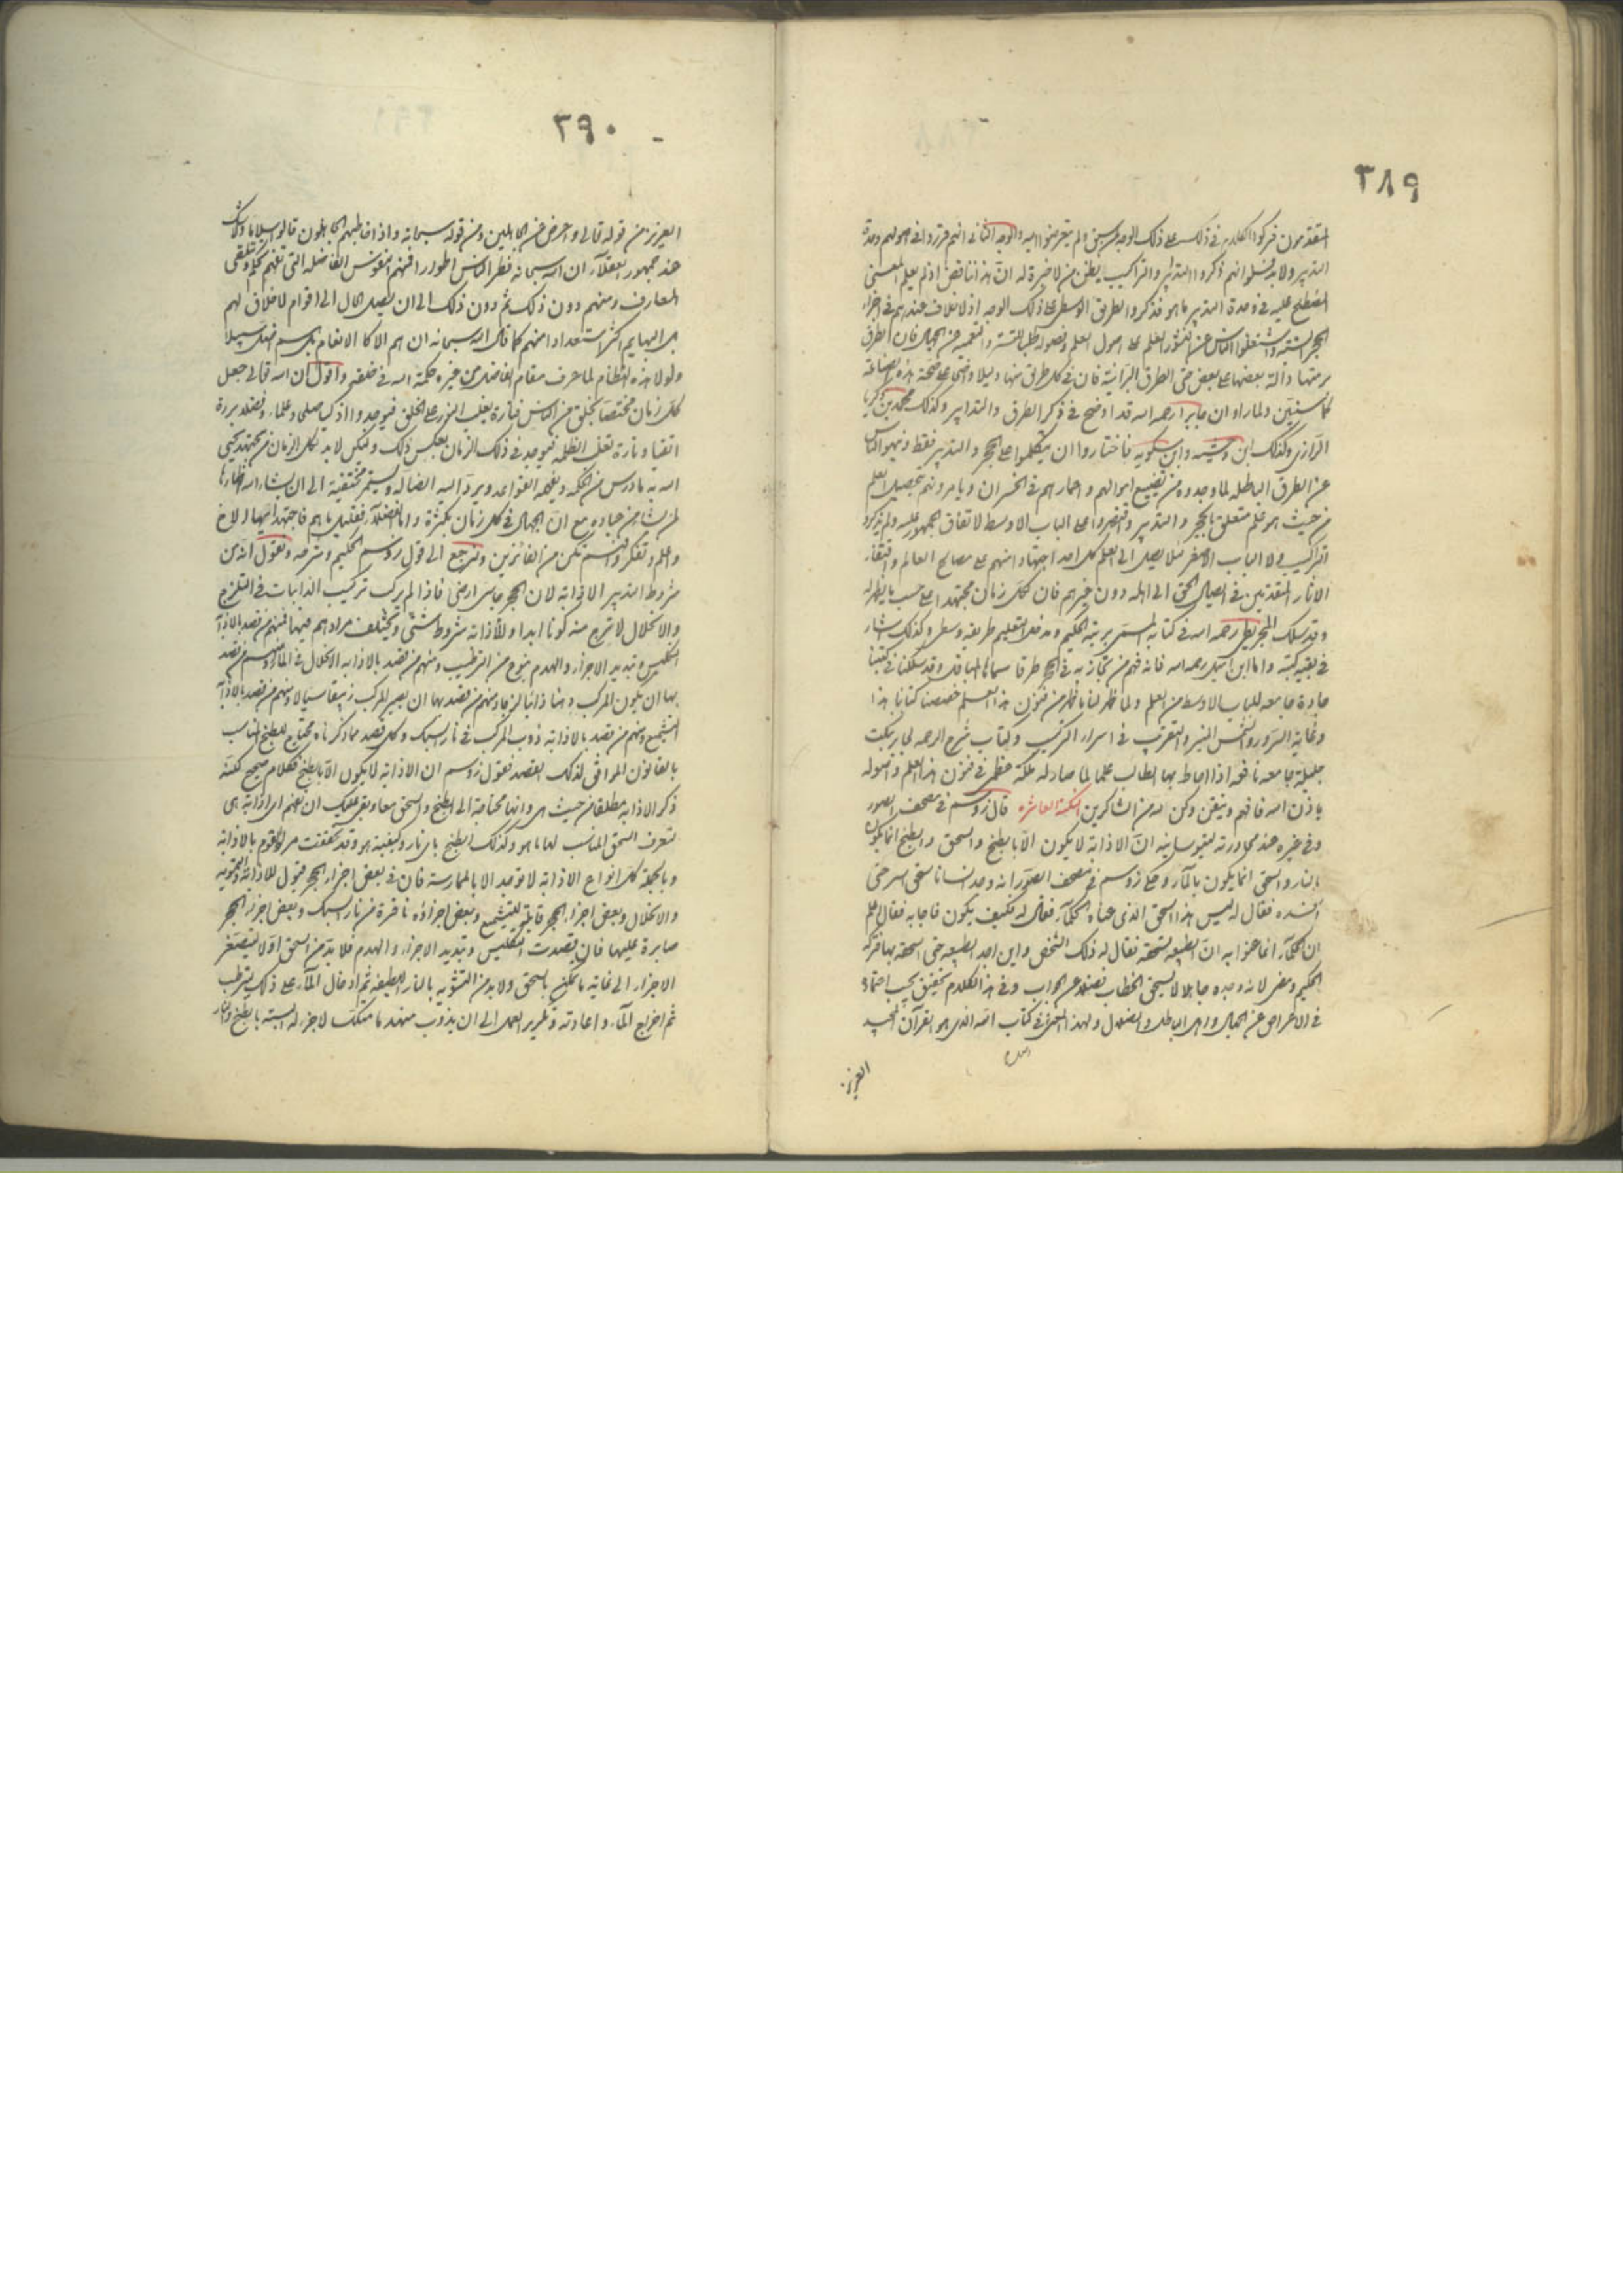 ٣٨٩
المتقدمون فتركوا الكلام في ذلك على ذلك الوجه ولم يتعرضوا اليه والوجه الثاني انهم قرروا في اصولهم وحدة
التدبير ولا بد فلو انهم ذكروا التدابير والتراكيب يظن من لا خبرة له ان هذا تناقض اذ لم يعلم المعنى
المصطلح عليه في وحدة التدبير ما هو فذكروا الطريق الوسطى على ذلك الوجه اذ لا خلاف عندهم في اجزاء
الحجر الستة العلم على اصول العلم وفصوله طلبا للتستر والتعمية عن الجهال فان الطرق
برمتها دالة بعضها على بعض حتى الطرق البرانية فان في كل طريق منها دليلا واضحا على صحة هذه الصناعة
كما سنبين ولما راوا ان جابرا رحمه الله قد اوضح في ذكر الطرق والتدابير وكذلك محمد بن زكريا
الرازي وكذلك ابن وحشية وابن مسكويه فاختاروا ان يتكلموا على الحجر والتدبير فقط ونبهوا الناس
عن الطرق الباطلة لما وجدوه من تضييع اموالهم واعمارهم في الخسران ويامرونهم بتحصيل العلم
من حيث هو علم متعلق بالحجر والتدبير واقتصروا على الباب الاوسط لاتفاق الجمهور عليه ولم يذكروا
التراكيب ولا الباب الاصغر لئلا يصل الى العلم كل احد اجتهادا منهم على مصالح العالم واقتفاء
لاثار المتقدمين في ايصال الحق الى اهله دون غيرهم فان لكل زمان مجتهدا على حسب ما يظهر له
وقد سلك المجريطي رحمه الله في كتابه المسمى برتبة الحكيم ومدخل التعليم طريقة وسطى وكذلك اشار
في بقية كتبه واما ابن اميل رحمه الله فانه فهم من في الحجر طرقا وقد سلكنا في كتبنا
جادة جامعة للباب الاوسط من العلم ولما ظهر لنا ما ظهر من فنون هذا العلم خصصنا كتابنا هذا
وغاية السرور والشمس المنير والتقريب في اسرار التركيب وكتاب شرح الرحمة لجابر بنكت
جليلة جامعة نافعة اذا احاط بها الطالب علما لما صار له ملكة عظمى في فنون هذا العلم واصوله
باذن الله فافهم وتيقن وكن لله من الشاكرين النكتة العاشرة قال زوسم في مصحف الصور
وفي غيره عند محاورته لثيوسابيه ان الاذابة لا يكون الا بالطبخ والسحق والطبخ انما يكون
بالنار والسحق انما يكون بالماء وحكى زوسم في مصحف الصور انه وجد انسانا سحق اسرب حتى
افسده فقال له ليس هذا السحق الذي عناه الحكماء فقال له فكيف يكون فاجابه فقال اعلم
ان الحكماء انما عنوا به ان الطبيعة تسحقه فقال له ذلك الشخص واين اجد الطبيعة حتى اسحقه بها فتركه
الحكيم ومضى لانه وجده جاهلا لا يستحق الخطاب فضلا عن الجواب وفي هذا الكلام تحقيق يجب اعتماده
في الاعراض عن الجهال واهل الباطل والضلال ولهذا المعنى في كتاب الله الذي هو القرآن المجيد
العزيز
٣٩٠
العزيز من قوله تعالى واعرض عن الجاهلين ومن قوله سبحانه واذا خاطبهم الجاهلون قالوا سلاما ولا شك
عند جمهور العقلاء ان الله سبحانه فطر الناس اطوارا فمنهم النفوس الفاضلة التي تفهم الحكم وتتلقى
المعارف ومنهم دون ذلك ثم دون ذلك الى ان يصل الحال الى اقوام لا خلاق لهم
بل البهايم اكثر استعدادا منهم كما قال الله سبحانه ان هم الا كالانعام بل هم اضل سبيلا
ولولا هذه النظام لما عرف مقام الفاضل من غيره حكمة الله في خلقه واقول ان الله تعالى جعل
كل زمان مختصا بخلق من الناس فتارة يغلب النور على الخلق فيوجدوا اذكيا صلحا وعلماء وفضلا بررة
اتقيا وتارة تغلب الظلمة فيوجد في ذلك الزمان بعكس ذلك ولكن لا بد لكل الزمان من مجتهد يحيي
الله به ما درس من الحكمة ويفهمه القواعد ويرد اليه الضالة ويستمر مختفية الى ان يشاء الله اظهارها
لمن يشاء من عباده مع ان الجهال في كل زمان بكثرة واما الفضلاء فقليل ما هم فاجتهد ايها الاخ
واعلم وتفكر وافهم تكن من الفائزين ولنرجع الى قول زوسم الحكيم وشرحه ونقول ان من
شروط التدبير الاذابة لان الحجر جاسي ارضي فاذا لم يركب تركيب الذائبات في التلزج
والانحلال لا يخرج منه كونا ابدا وللاذابة شروط شتى وتختلف مرادهم فيها فمنهم من قصد بالاذابة
التكليس وتبديد الاجزاء والهدم بنوع من الترطيب ومنهم من قصد بالاذابة الانحلال في الماء ومنهم من قصد
بها ان يكون المركب دهنا ذائبا لزجا ومنهم من قصد بها ان يصير المركب زيبقا سيالا ومنهم من قصد بالاذابة
التشميع ومنهم من قصد بالاذابة ذوب المركب في نار السبك وكل قصد مما ذكرناه محتاج للطبخ المناسب
بالقانون الموافق لذلك القصد فقول زوسم ان الاذابة لا يكون الا بالطبخ فكلام صحيح لكنه
ذكر الاذابة مطلقا من حيث هي وانها محتاجة الى الطبخ والسحق معا وبقي عليك ان تفهم اي اذابة هي
لتعرف السحق المناسب لها ما هو وكذلك الطبخ باي نار وكيفيته هو وقد تحققت مراد القوم بالاذابة
وبالجملة كل انواع الاذابة لا توجد الا بالممارسة فان في بعض اجزاء الحجر قبول للاذابة
والانحلال وبعض اجزاء الحجر قابلة للتشميع وبعض اجزاؤه نافرة من نار السبك وبعض اجزاء الحجر
صابرة عليها فان قصدت التكليس وتبديد الاجزاء والهدم فلا بد من السحق اولا لتصغر
الاجزاء الى غاية ما يمكن بالسحق ولا بد من التشوية بالنار اللطيفة ثم ادخال الماء على ذلك ليترطب
ثم اخراج الماء واعادته وتكرير العمل الى ان يذوب منه ما متكلس لاجزاء له البتة بالطبخ والنار